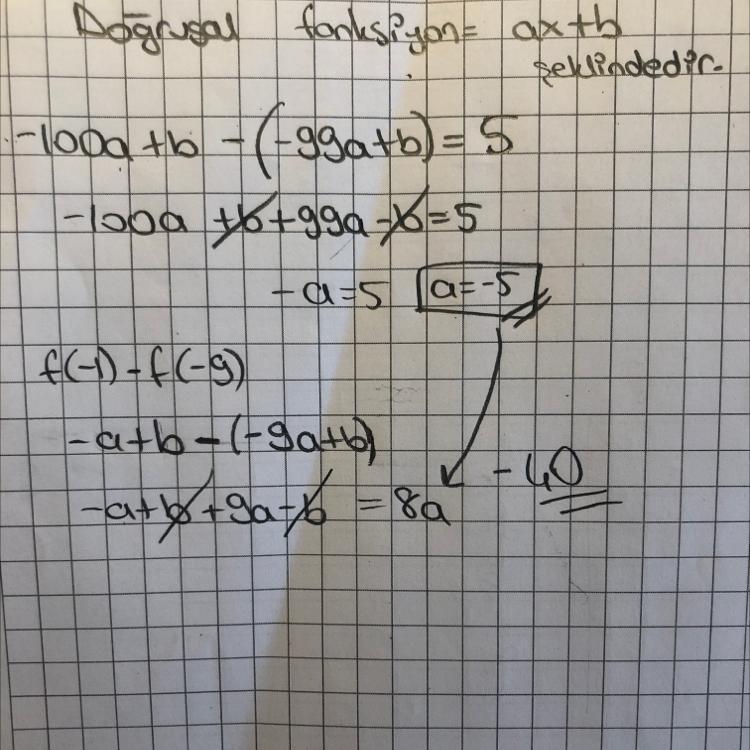 Doğrusal fonksiyon= ax+b
şeklindedir.
-100a+b -(-99a+b)= 5
-100a +b+99a-b=5
-a=5 a=-5
f(-1)-f(-9)
-a+b-(-9a+b)
-a+b+9a-b = 8a -40